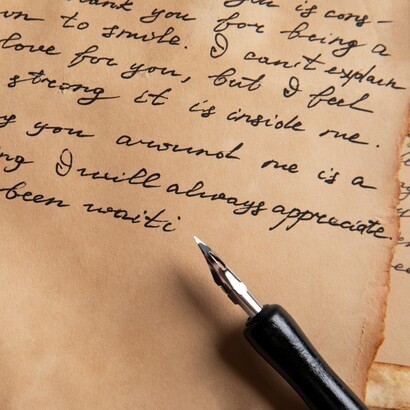 you is cons-
thank you for being a
own to smile. I can't explain
love for you, but I feel
strong it is inside me.
you around me is a
ing I will always appreciate.
been waiti